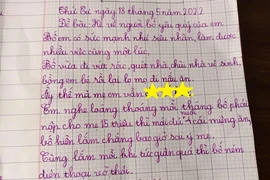 Thứ tư ngày 18 tháng 5 năm 2022
Đề bài: Kể về người bố yêu quý của em
Bố em có sức mạnh như siêu nhân, làm được
nhiều việc cùng một lúc,
Bố vừa đi vứt rác, quét nhà, chùi nhà vệ sinh,
bỗng em bé rồi lại lo mọ đi nấu ăn.
Ấy thế mà mẹ em vẫn
Em nghe loáng thoáng mỗi tháng bố phải
nộp cho mẹ 15 triệu thì mới được nuôi cái miệng ăn,
bố hiền lắm chẳng bao giờ sai ý mẹ.
Cùng lắm mỗi khi tức giận quá thì bố ném
điện thoại xẻo thôi.